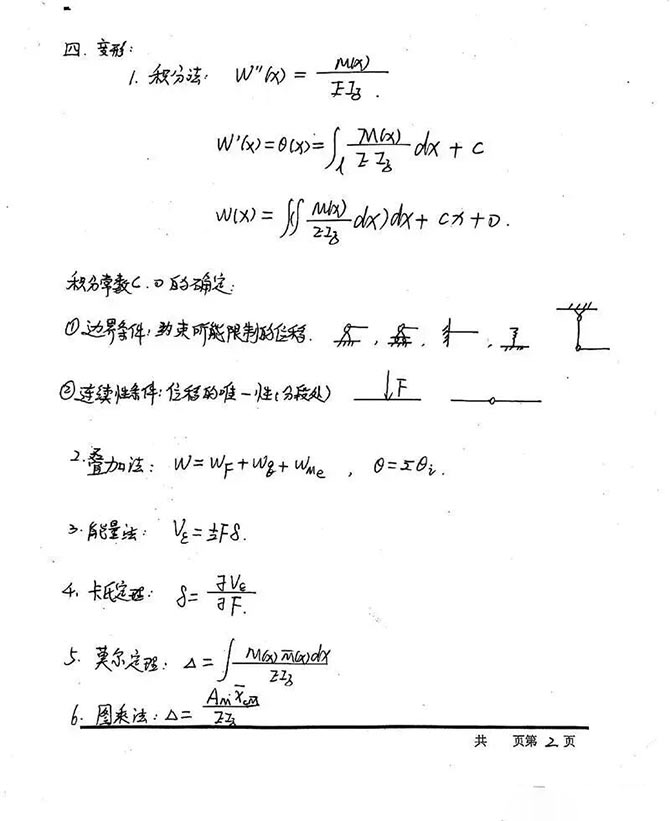 四. 变形:
1. 积分法: W''(x) = M(x) / EI_z.
W'(x) = θ(x) = ∫_l M(x) / EI_z dx + C
W(x) = ∫(∫ M(x) / EI_z dx)dx + Cx + D.
积分常数C.D的确定:
①边界条件: 约束所能限制的位移.
②连续性条件: 位移的唯一性(分段处) F
2. 叠加法: W = W_F + W_q + W_Me , θ = Σθ_i.
3. 能量法: V_ε = ½Fδ.
4. 卡氏定理: δ = ∂V_ε / ∂F.
5. 莫尔定理: Δ = ∫ M(x) M̄(x)dx / EI_z
6. 图乘法: Δ = A_M x̄ / EI_z
共 页第 2 页